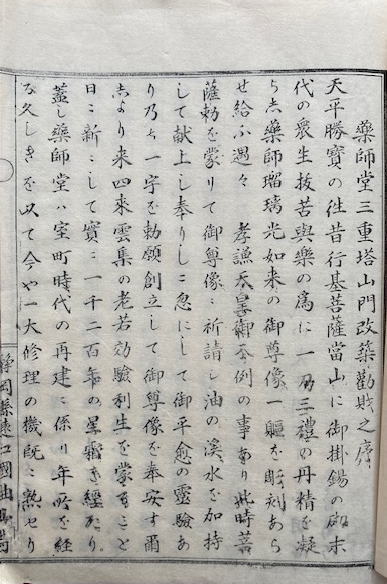 藥師堂三重塔山門改築勸財之序
天平勝寶の徃昔行基菩薩當山に御掛錫の砌末
代の衆生抜苦與樂の為に一刀三禮の丹精を凝
らし藥師瑠璃光如来の御尊像一軀を彫刻あら
せ給ふ遇々孝謙天皇御不例の事あり此時菩
薩勅を蒙りて御尊像ニ祈請し油の渓水を加持
して献上し奉りしに忽にして御平愈の靈驗あ
り乃ち一宇を勅願創立して御尊像を奉安す爾
しより来四來雲集の老若効驗利生を蒙ること
日ニ新ニして實ニ一千二百年の星霜を經たり。
蓋し藥師堂ハ室町時代の再建に係り年所を経
る久しきを以て今や一大修理の機既ニ熟せり
靜岡縣遠江國油山寺